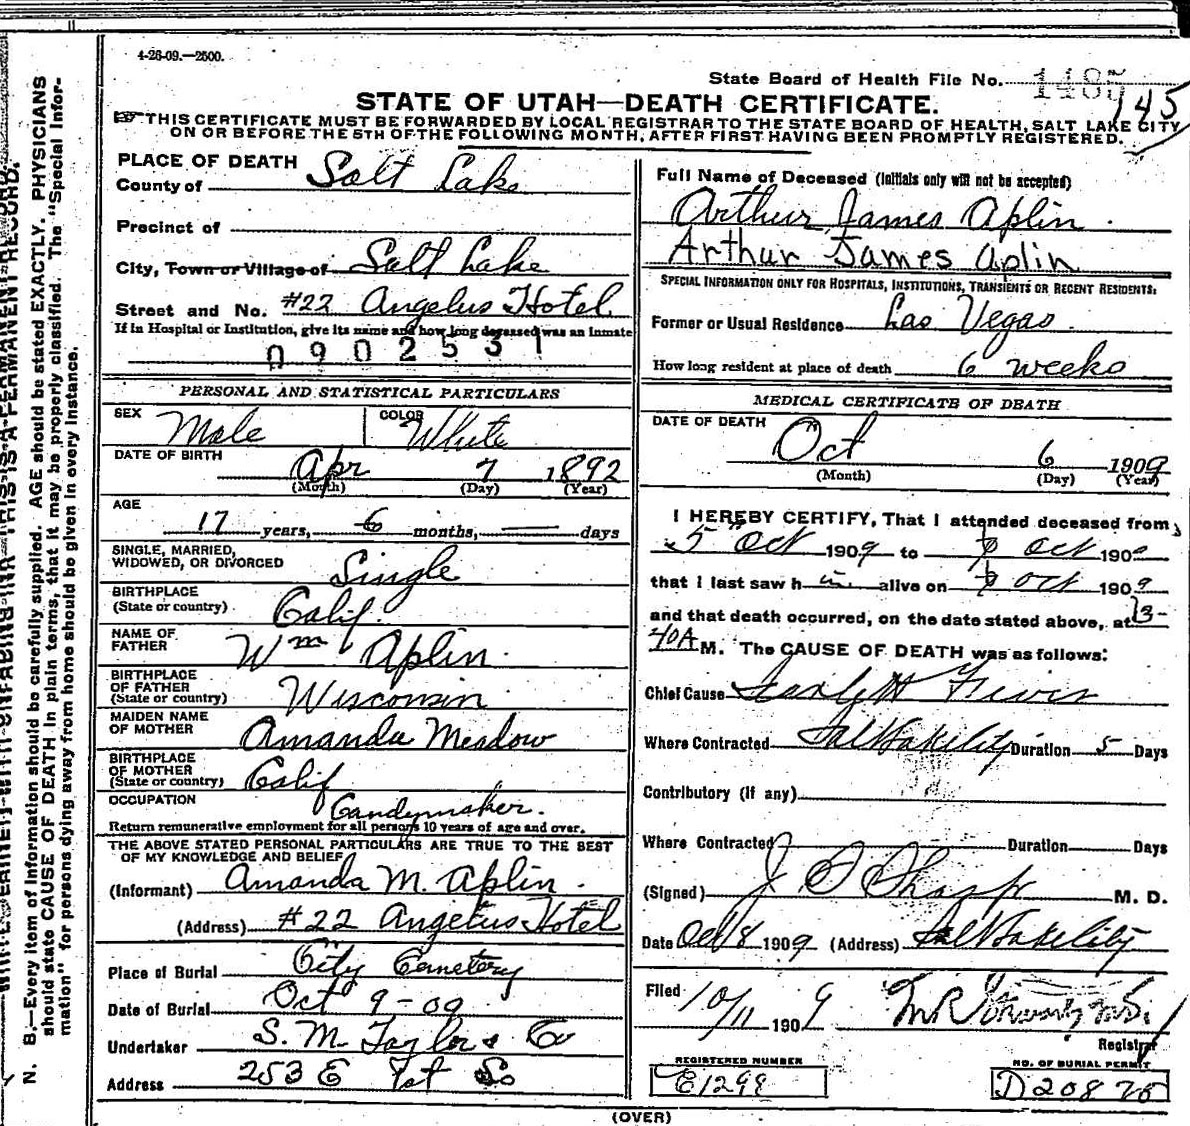 4-26-09.—2500.
State Board of Health File No. 1485
145
STATE OF UTAH—DEATH CERTIFICATE.
THIS CERTIFICATE MUST BE FORWARDED BY LOCAL REGISTRAR TO THE STATE BOARD OF HEALTH, SALT LAKE CITY,
ON OR BEFORE THE 5TH OF THE FOLLOWING MONTH, AFTER FIRST HAVING BEEN PROMPTLY REGISTERED.
PLACE OF DEATH
County of Salt Lake
Precinct of
City, Town or Village of Salt Lake
Street and No. #22 Angelus Hotel
If in Hospital or Institution, give its name and how long deceased was an inmate
0902531
PERSONAL AND STATISTICAL PARTICULARS
SEX Male COLOR White
DATE OF BIRTH Apr 7 1892
(Month) (Day) (Year)
AGE
17 years, 6 months, days
SINGLE, MARRIED,
WIDOWED, OR DIVORCED Single
BIRTHPLACE
(State or country) Calif.
NAME OF
FATHER Wm Aplin.
BIRTHPLACE
OF FATHER
(State or country) Wisconsin
MAIDEN NAME
OF MOTHER Amanda Meadow
BIRTHPLACE
OF MOTHER
(State or country) Calif
OCCUPATION Candymaker.
Return remunerative employment for all persons 10 years of age and over.
THE ABOVE STATED PERSONAL PARTICULARS ARE TRUE TO THE BEST
OF MY KNOWLEDGE AND BELIEF
(Informant) Amanda M. Aplin.
(Address) #22 Angelus Hotel
Place of Burial City Cemetery
Date of Burial Oct 9-09
Undertaker S. M. Taylor & Co
Address 253 E 1st So
Full Name of Deceased (Initials only will not be accepted)
Arthur James Aplin.
Arthur James Aplin
SPECIAL INFORMATION ONLY FOR HOSPITALS, INSTITUTIONS, TRANSIENTS OR RECENT RESIDENTS:
Former or Usual Residence Las Vegas
How long resident at place of death 6 weeks
MEDICAL CERTIFICATE OF DEATH
DATE OF DEATH
Oct 6 1909
(Month) (Day) (Year)
I HEREBY CERTIFY, That I attended deceased from
5 Oct 1909 to Oct 190
that I last saw h im alive on Oct 1909
and that death occurred, on the date stated above, at 3-
40A M. The CAUSE OF DEATH was as follows:
Chief Cause Scarlet Fever
Where Contracted Salt Lake City Duration 5 Days
Contributory (if any)
Where Contracted Duration Days
(Signed) J Sharp M. D.
Date Oct 8 1909 (Address) Salt Lake City
Filed 10/11 1909
Registrar
REGISTERED NUMBER
E1298
NO. OF BURIAL PERMIT
(OVER)
N. B.—Every item of information should be carefully supplied. AGE should be stated EXACTLY. PHYSICIANS
should state CAUSE OF DEATH in plain terms, that it may be properly classified. The "Special Information" for persons dying away from home should be given in every instance.